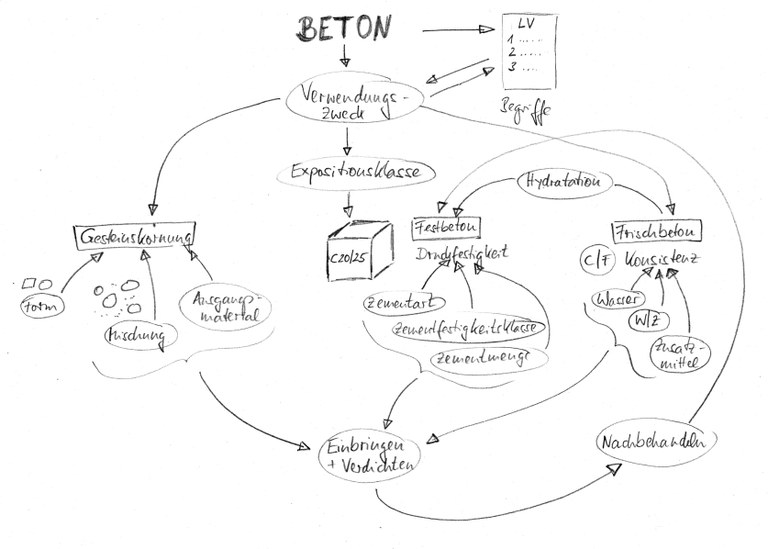 BETON
LV
1 .....
2 .....
3 ....
Begriffe
Verwendungs-
zweck
Expositionsklasse
Hydratation
Gesteinskörnung
C20/25
Festbeton
Druckfestigkeit
Frischbeton
C/F
Konsistenz
Form
Mischung
Ausgangs-
material
Zementart
Zementfestigkeitsklasse
Zementmenge
Wasser
W/Z
Zusatz-
mittel
Einbringen
+ Verdichten
Nachbehandeln